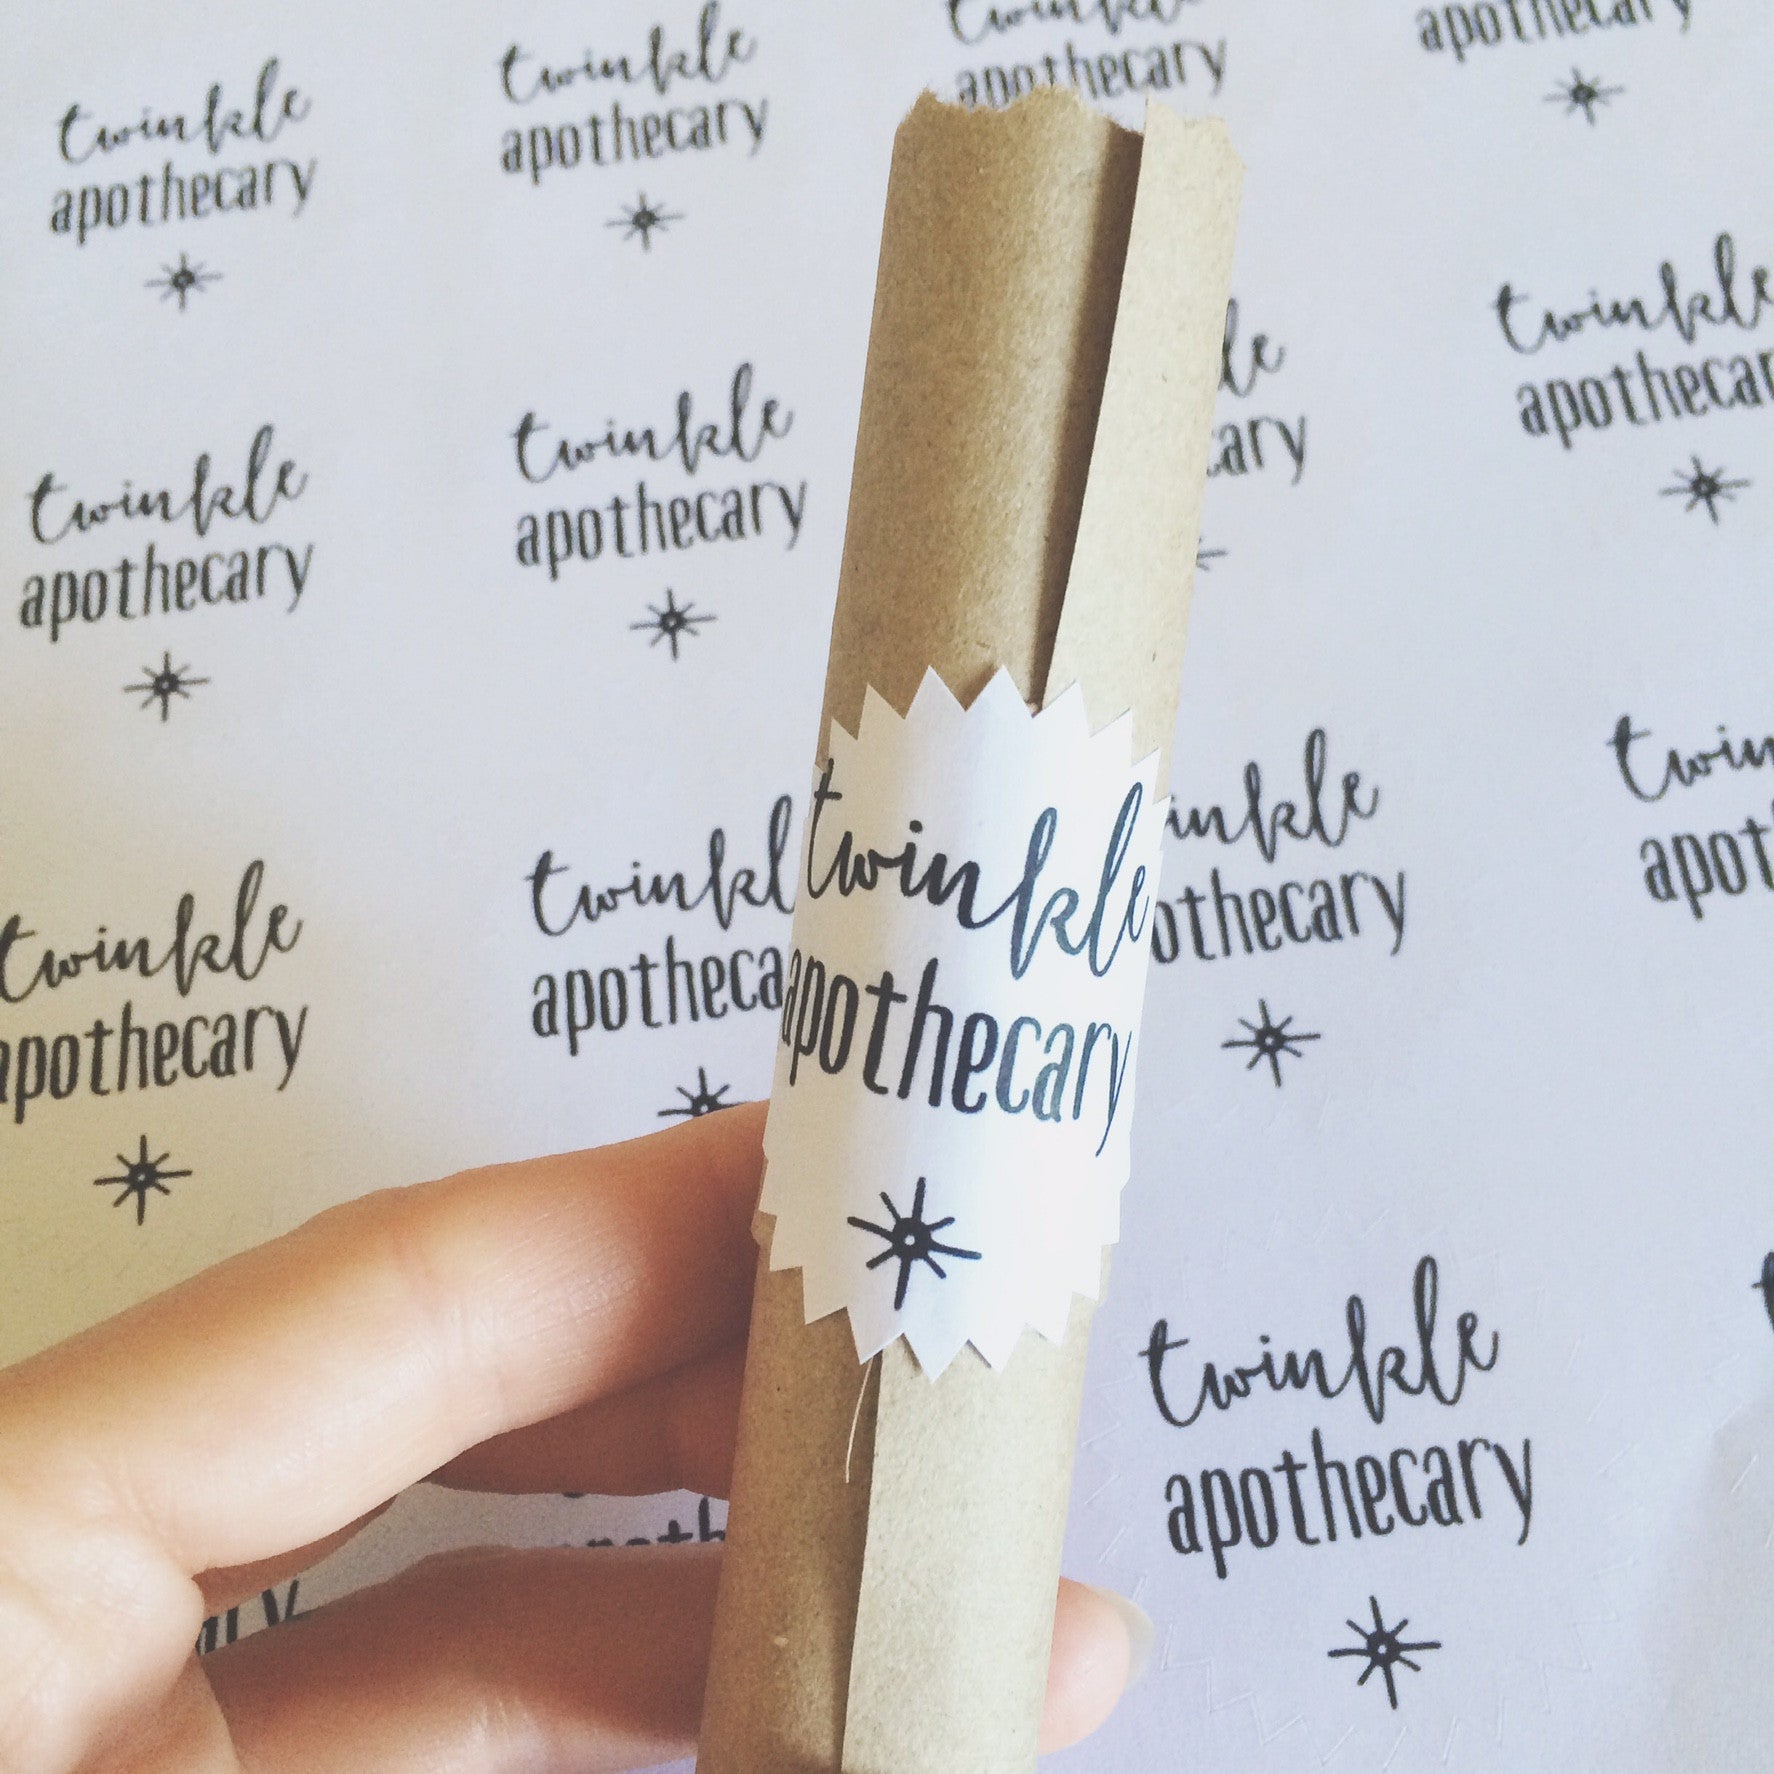 twinkle
apothecary
twinkle
apothecary
twinkle
apothecary
apothecary
twinkle
apothecary
twinkle
apothecary
twinkle
apothecary
twinkle
apothecary
twinkle
apothecary
twinkle
apothecary
twinkle
apothecary